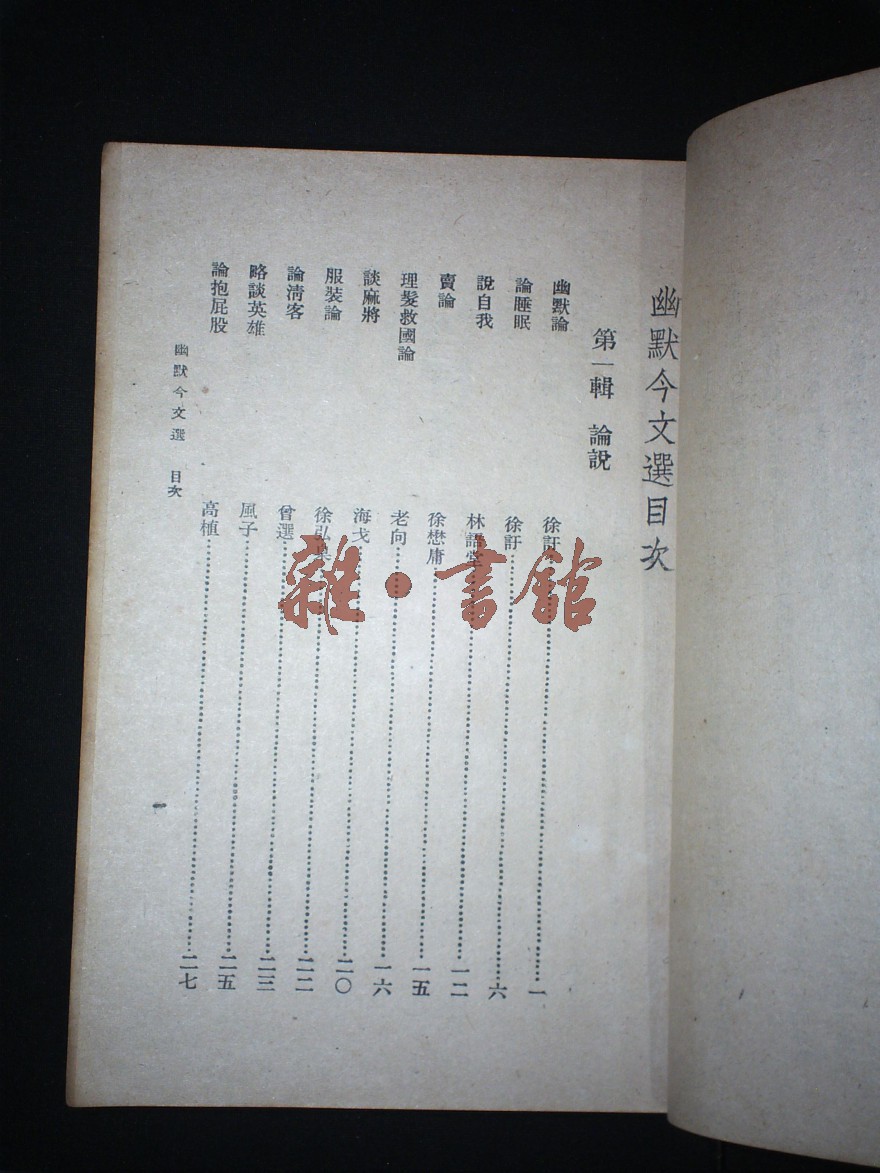 幽默今文選目次
第一輯 論說
幽默論 徐訏……一
論睡眠 徐訏……六
說自我 林語堂……一二
賣論 徐懋庸……一五
理髮救國論 老向……一六
談麻將 海戈……二〇
服裝論 徐弘……二二
論清客 曾選……二三
略談英雄 風子……二五
論抱屁股 高植……二七
幽默今文選 目次
一
雜·書館